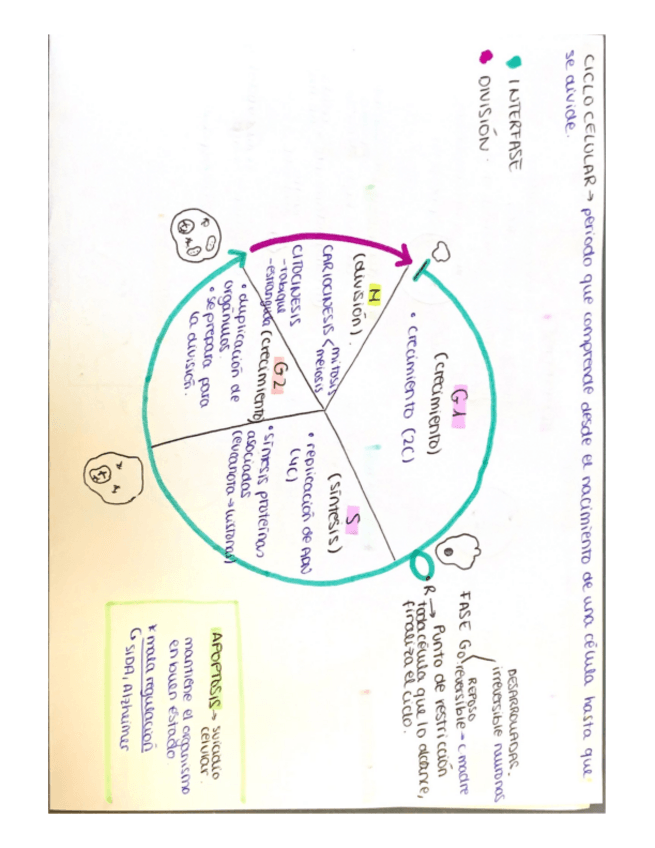 CICLO CELULAR → periodo que comprende desde el nacimiento de una célula hasta que
se divide.
INTERFASE
DIVISIÓN.
G1
(crecimiento)
• crecimiento (2C)
M
(división).
CARIOCINESIS < mitosis
meiosis
CITOCINESIS
- tabique
- estrangula
G2
(crecimiento)
• duplicación de
orgánulos.
• se prepara para
la división.
S
(síntesis)
• replicación de ADN
(4C)
• síntesis proteínas
asociadas
(eucariota → histonas)
DESARROLLADAS.
irreversible neuronas
FASE G0
REPOSO
reversible → c. madre
• R → Punto de restricción
toda célula que lo alcance,
finaliza el ciclo.
APOPTOSIS → suicidio
celular.
mantiene el organismo
en buen estado
* mala regulación
SIDA, Alzheimer